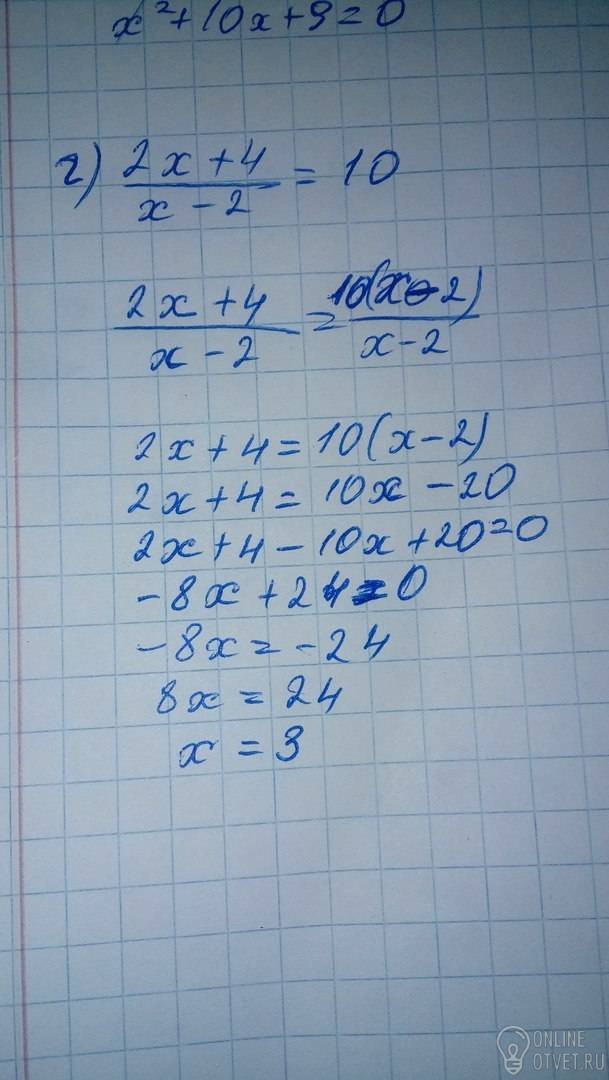 x²+10x+9=0
г) (2x+4)/(x-2) = 10
(2x+4)/(x-2) = 10(x-2)/(x-2)
2x+4=10(x-2)
2x+4=10x-20
2x+4-10x+20=0
-8x+24=0
-8x=-24
8x=24
x=3
ONLINE
OTVET.RU